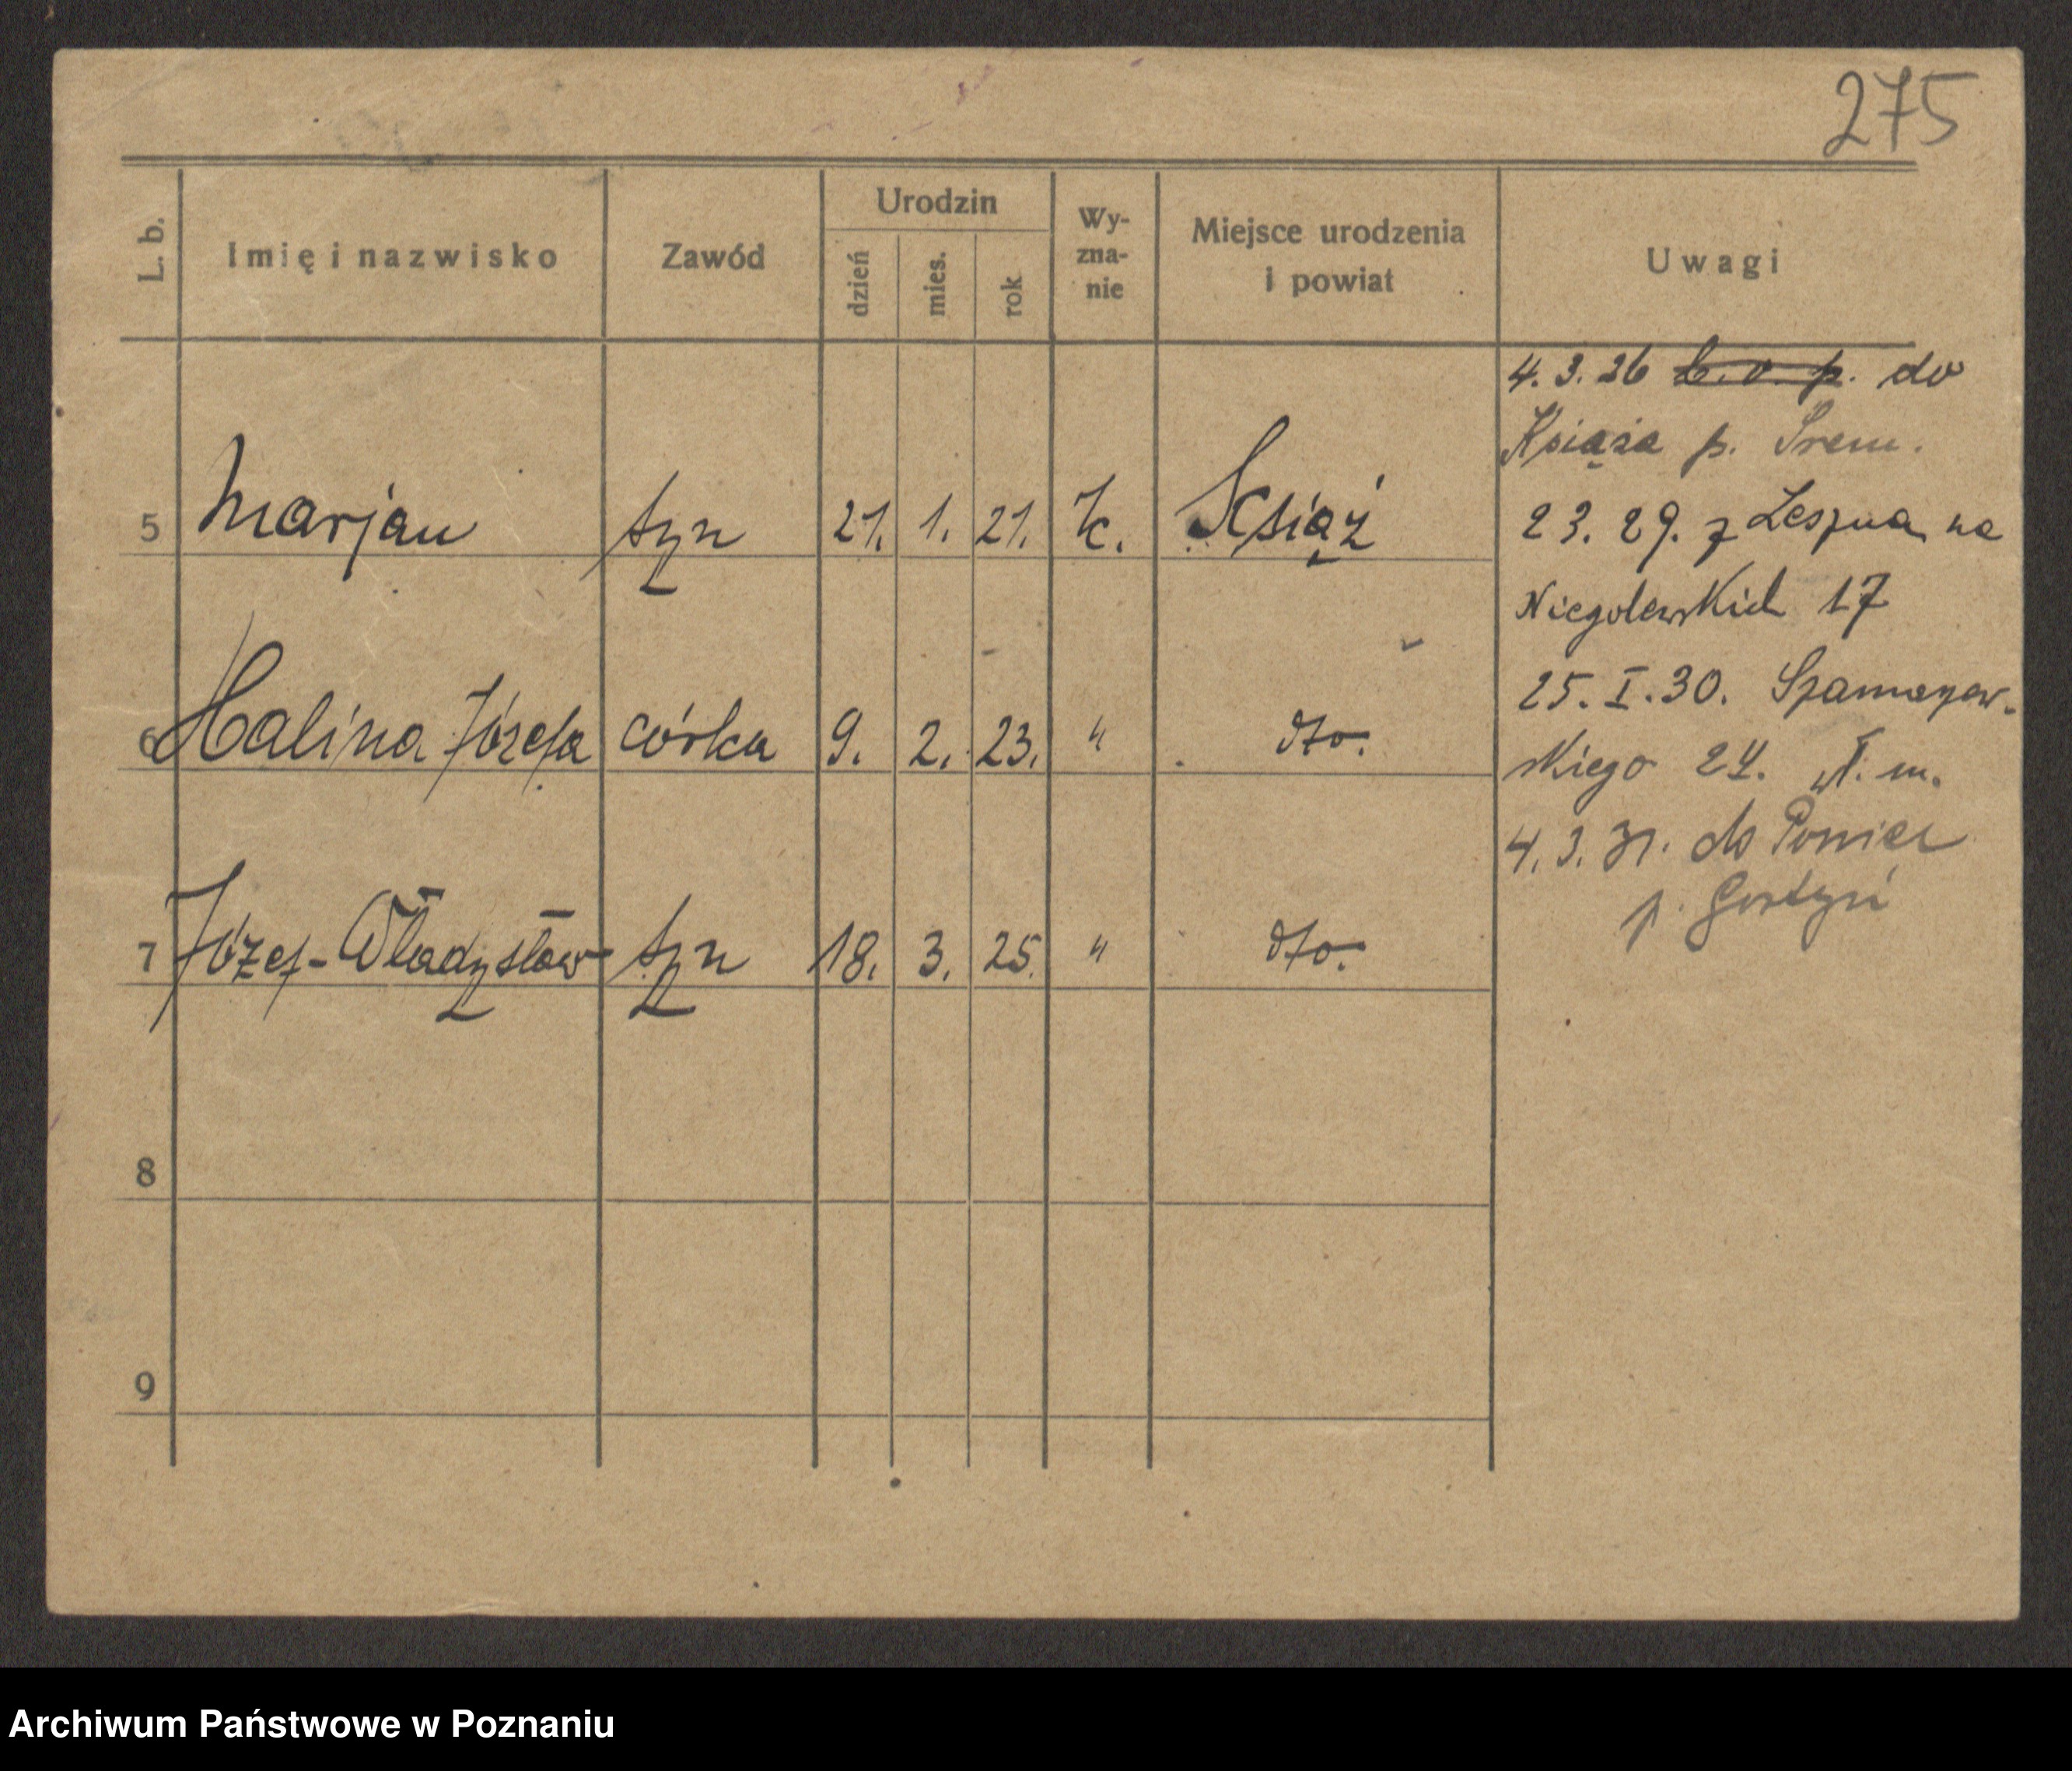 275
L. b.
Imię i nazwisko
Zawód
Urodzin
dzień
mies.
rok
Wy-
zna-
nie
Miejsce urodzenia
i powiat
Uwagi
5 Marjan syn 21. 1. 21. k. Książ
6 Halina Józefa córka 9. 2. 23. " dto.
7 Józef-Władysław syn 18. 3. 25. " dto.
8
9
4. 3. 26 b. o. p. do
Książa p. Śrem.
23. 29. z Leszna na
Niegolewskich 17
25. I. 30. Szamarzew-
skiego 24. w m.
4. 3. 31. do Poniec
p. Gostyń
Archiwum Państwowe w Poznaniu